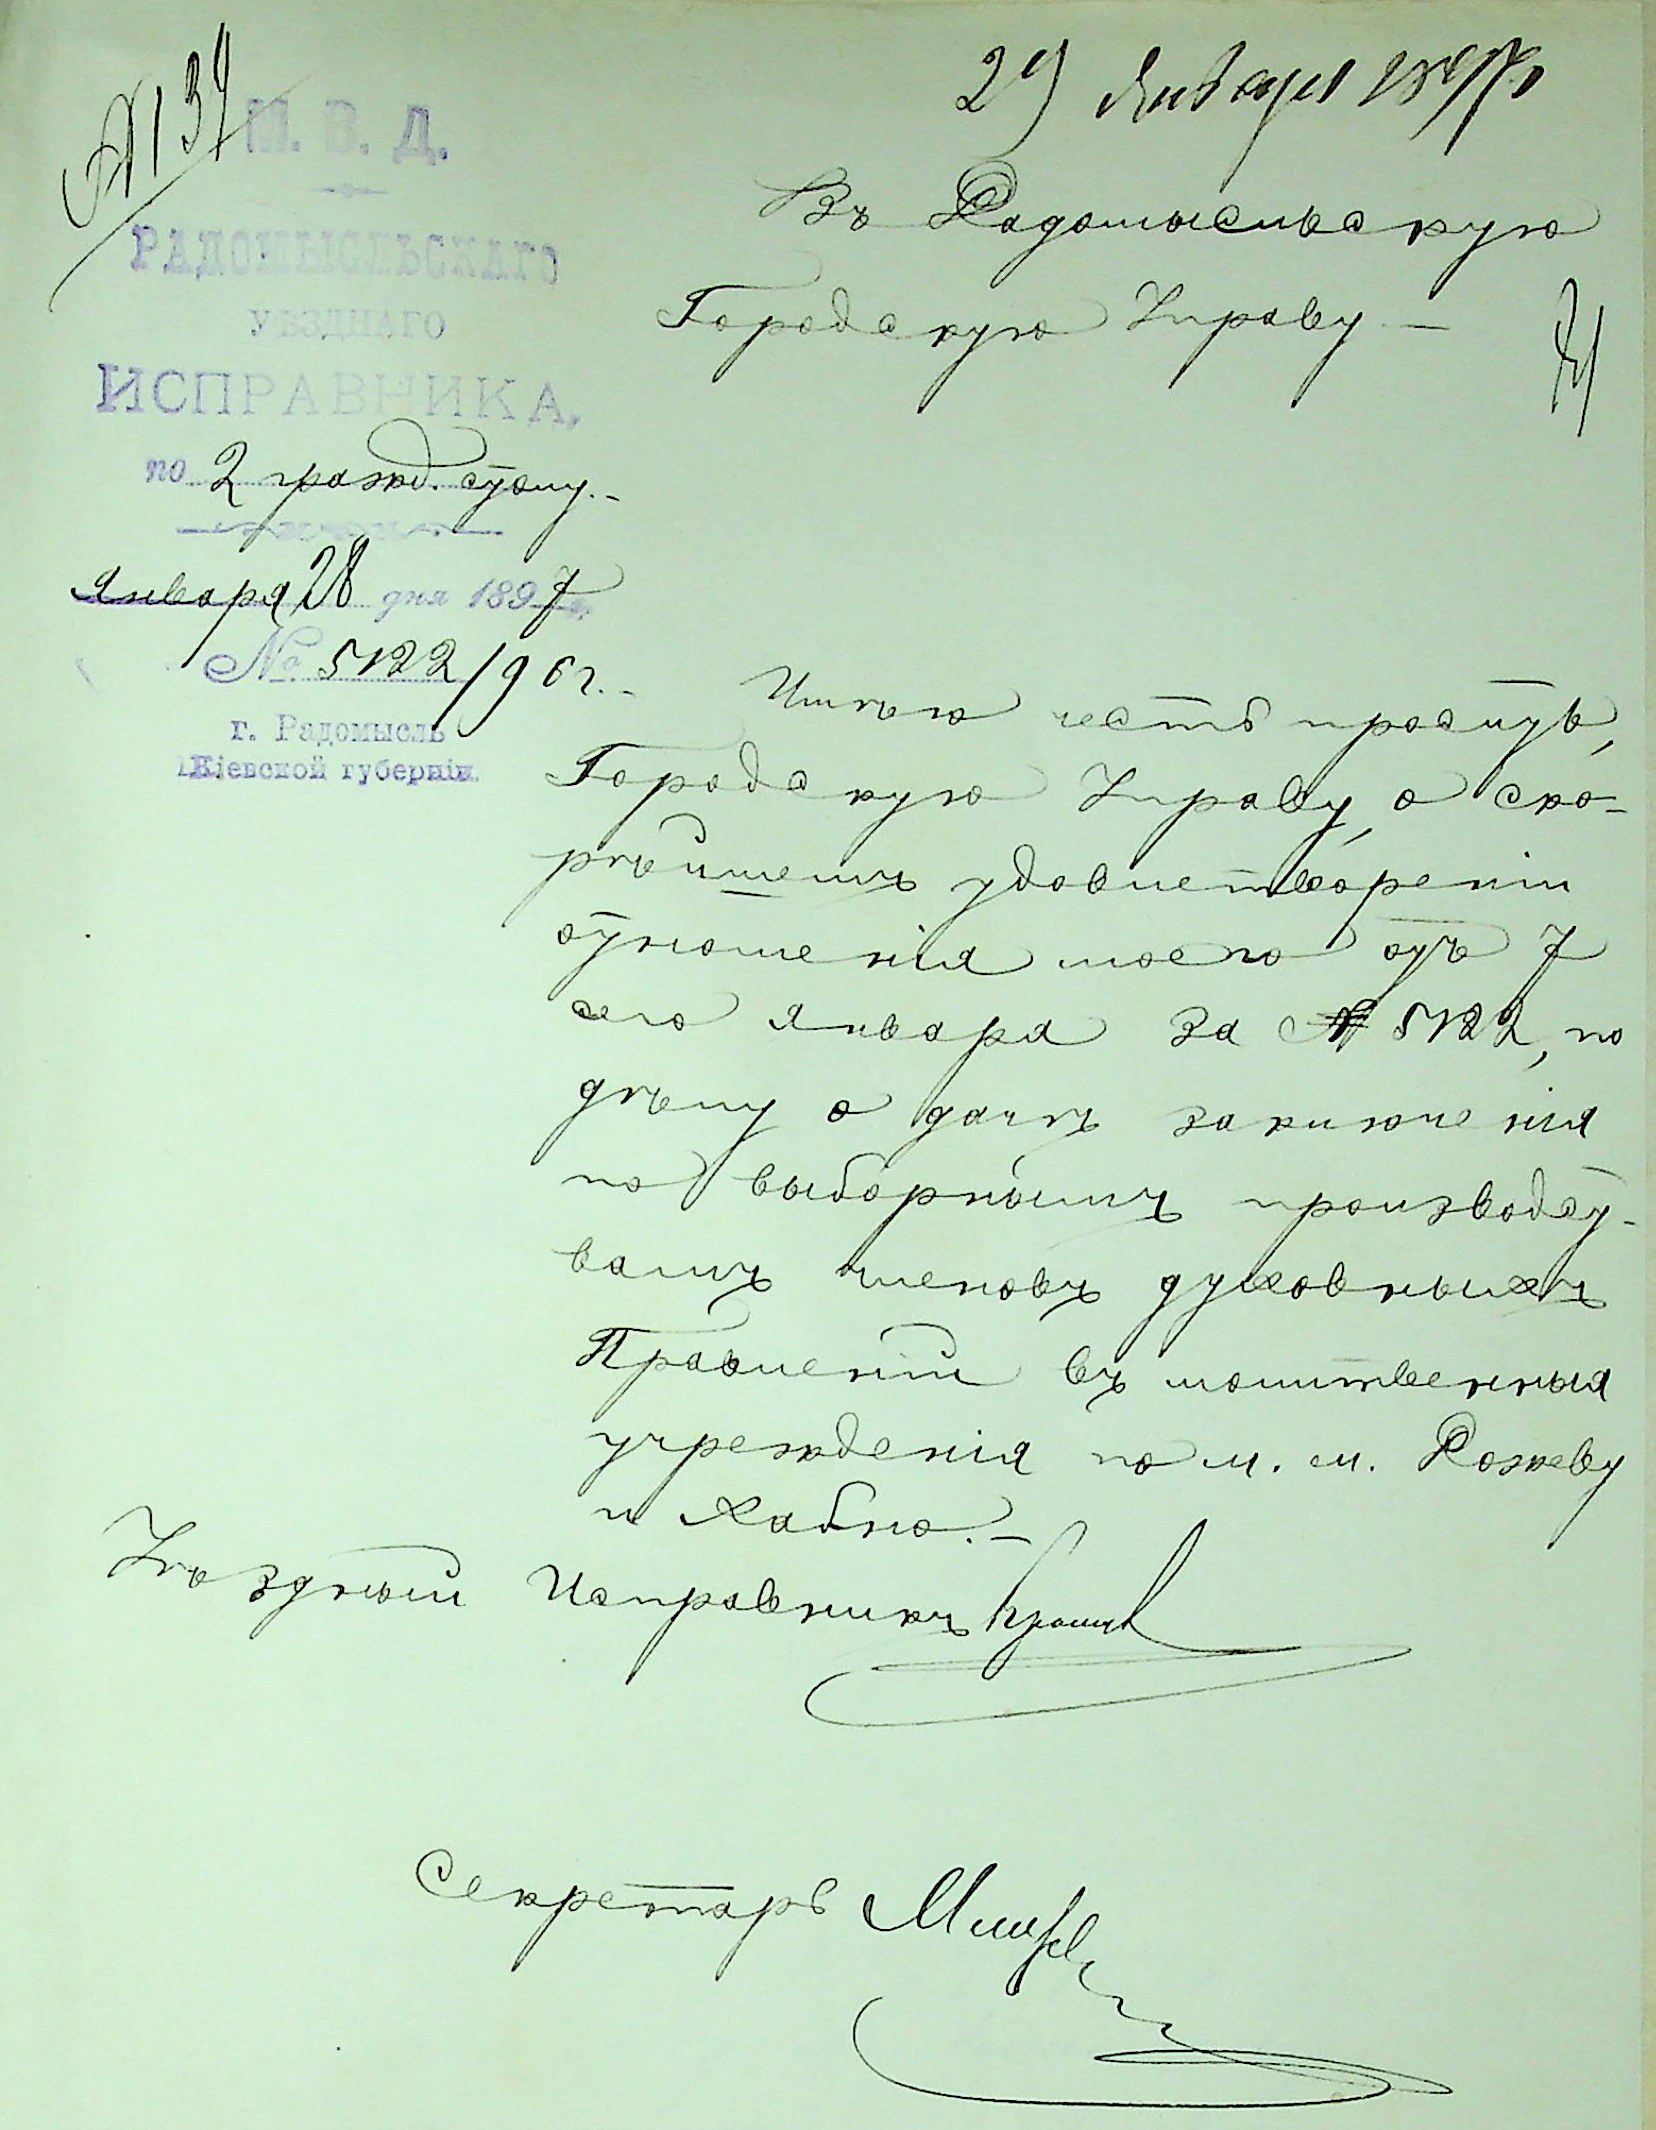 № 139
29 Января 1897 г.
М. В. Д.
РАДОМЫСЛЬСКАГО
УѢЗДНАГО
ИСПРАВНИКА.
по 2 гражд. столу.-
Января 28 дня 1897 г.
№ 5122/96 г.-
г. Радомысль
Кіевской губерніи.
Въ Радомысльскую
Городскую Управу —
Имѣю честь просить,
Городскую Управу, о ско-
рѣйшемъ удовлетвореніи
отношенія моего отъ 7
сего Января за № 5122, по
дѣлу о дачѣ заключенія
по выборнымъ производст-
вамъ членовъ духовныхъ
Правленій въ молитвенныя
учрежденія по м. м. Рожеву
и Хабно.—
Уѣздный Исправникъ
Секретарь